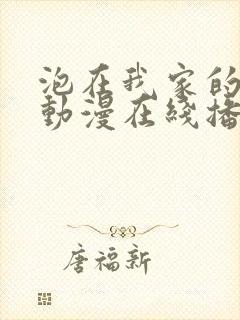 泡在我家的
動漫在綫播
唐福新